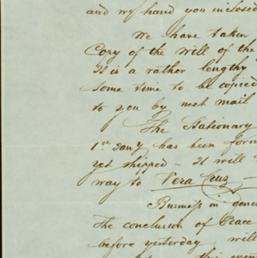 and my hand you inclosed
We have taken
Copy of the Will of the
It is a rather lengthy
some time to be copied
to you by next mail
The Stationary
1st Jany has been for
yet shipped – It will
way to Vera Cruz –
Business in gene
The conclusion of Peace
before yesterday, will
this even